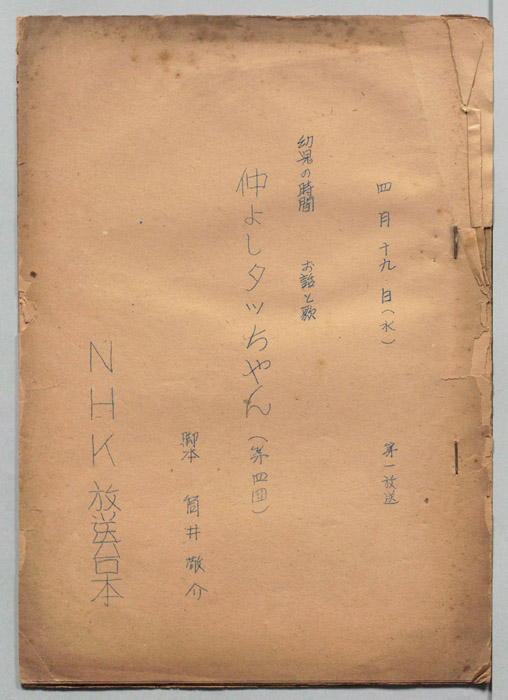 四月十九日(水) 第一放送
幼児の時間 お話と歌
仲よしタッちゃん(第四回)
脚本 筒井敬介
NHK放送台本